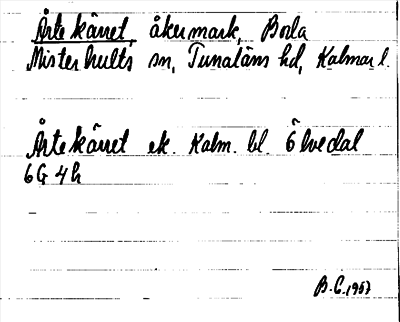 Årtekärret, åkermark, Boda
Misterhults sn, Tunaläns hd, Kalmar l.
Årtekärret ek. Kalm. bl. Ölvedal
6G 4h
B.C. 1957